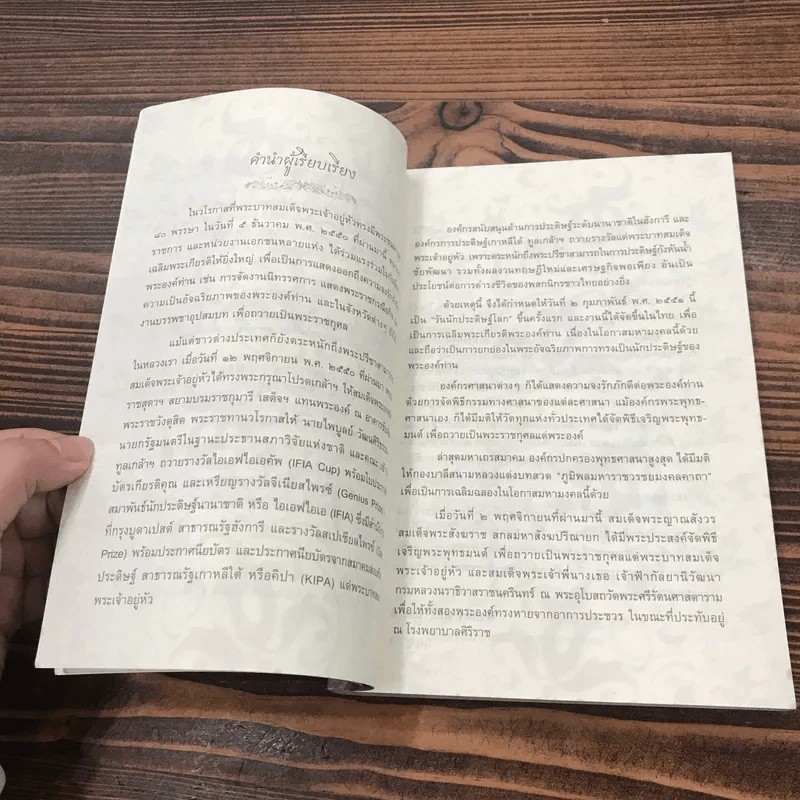 คำนำผู้เรียบเรียง
ในวโรกาสที่พระบาทสมเด็จพระเจ้าอยู่หัวทรงมีพระชนมายุ
๘๐ พรรษา ในวันที่ ๕ ธันวาคม พ.ศ. ๒๕๕๐ ที่ผ่านมานี้
ราชการ และหน่วยงานเอกชนหลายแห่ง ได้ร่วมแรงร่วมใจกัน
เฉลิมพระเกียรติให้ยิ่งใหญ่ เพื่อเป็นการแสดงออกถึงความ
พระองค์ท่าน เช่น การจัดงานนิทรรศการ แสดงพระราชกรณียกิจ
ความเป็นอัจฉริยภาพของพระองค์ท่าน และในจังหวัดต่างๆ
งานบรรพชาอุปสมบท เพื่อถวายเป็นพระราชกุศล
แม้แต่ชาวต่างประเทศก็ยังตระหนักถึงพระปรีชาสามารถ
ในหลวงเรา เมื่อวันที่ ๑๒ พฤศจิกายน พ.ศ. ๒๕๕๐ ที่ผ่านมา
สมเด็จพระเจ้าอยู่หัวได้ทรงพระกรุณาโปรดเกล้าฯ ให้สมเด็จพระเทพ
ราชสุดาฯ สยามบรมราชกุมารี เสด็จฯ แทนพระองค์ ณ อาคาร
พระราชวังดุสิต พระราชทานวโรกาสให้ นายไพบูลย์ วัฒนศิริธรรม
นายกรัฐมนตรีในฐานะประธานสภาวิจัยแห่งชาติ และคณะ
ทูลเกล้าฯ ถวายรางวัลไอเอฟไอเอคัพ (IFIA Cup) พร้อมใบประกาศ
บัตรเกียรติคุณ และเหรียญรางวัลจีเนียสไพรซ์ (Genius Prize)
สมาพันธ์นักประดิษฐ์นานาชาติ หรือ ไอเอฟไอเอ (IFIA) ซึ่งมีสำนัก
ที่กรุงบูดาเปสต์ สาธารณรัฐฮังการี และรางวัลสเปเชียลไพรซ์
Prize) พร้อมประกาศนียบัตร และประกาศนียบัตรจากสมาคม
ประดิษฐ์ สาธารณรัฐเกาหลีใต้ หรือคิปา (KIPA) แด่พระบาท
พระเจ้าอยู่หัว
องค์กรสนับสนุนด้านการประดิษฐ์ระดับนานาชาติในฮังการี และ
องค์กรการประดิษฐ์เกาหลีใต้ ทูลเกล้าฯ ถวายรางวัลแด่พระบาทสมเด็จ
พระเจ้าอยู่หัว เพราะตระหนักถึงพระปรีชาสามารถในการประดิษฐ์กังหันน้ำ
ชัยพัฒนา รวมทั้งผลงานทฤษฎีใหม่และเศรษฐกิจพอเพียง อันเป็น
ประโยชน์ต่อการดำรงชีวิตของพสกนิกรชาวไทยอย่างยิ่ง
ด้วยเหตุนี้ จึงได้กำหนดให้วันที่ ๒ กุมภาพันธ์ พ.ศ. ๒๕๕๑ นี้
เป็น “วันนักประดิษฐ์โลก” ขึ้นครั้งแรก และงานนี้ได้จัดขึ้นในไทย เพื่อ
เป็นการเฉลิมพระเกียรติพระองค์ท่าน เนื่องในโอกาสมหามงคลนี้ด้วย
และถือว่าเป็นการยกย่องในพระอัจฉริยภาพการทรงเป็นนักประดิษฐ์ของ
พระองค์ท่าน
องค์กรศาสนาต่างๆ ก็ได้แสดงความจงรักภักดีต่อพระองค์ท่าน
ด้วยการจัดพิธีกรรมทางศาสนาของแต่ละศาสนา แม้องค์กรพระพุทธ-
ศาสนาเอง ก็ได้มีมติให้วัดทุกแห่งทั่วประเทศได้จัดพิธีเจริญพระพุทธ-
มนต์ เพื่อถวายเป็นพระราชกุศลแด่พระองค์
ล่าสุดมหาเถรสมาคม องค์กรปกครองพุทธศาสนาสูงสุด ได้มีมติ
ให้กองบาลีสนามหลวงแต่งบทสวด “ภูมิพลมหาราชวรชยมงคลคาถา”
เพื่อเป็นการเฉลิมฉลองในโอกาสมหามงคลนี้ด้วย
เมื่อวันที่ ๒ พฤศจิกายนที่ผ่านมานี้ สมเด็จพระญาณสังวร
สมเด็จพระสังฆราช สกลมหาสังฆปริณายก ได้มีพระประสงค์จัดพิธี
เจริญพระพุทธมนต์ เพื่อถวายเป็นพระราชกุศลแด่พระบาทสมเด็จ
พระเจ้าอยู่หัว และสมเด็จพระเจ้าพี่นางเธอ เจ้าฟ้ากัลยาณิวัฒนา
กรมหลวงนราธิวาสราชนครินทร์ ณ พระอุโบสถวัดพระศรีรัตนศาสดาราม
เพื่อให้ทั้งสองพระองค์ทรงหายจากอาการประชวร ในขณะที่ประทับอยู่
ณ โรงพยาบาลศิริราช